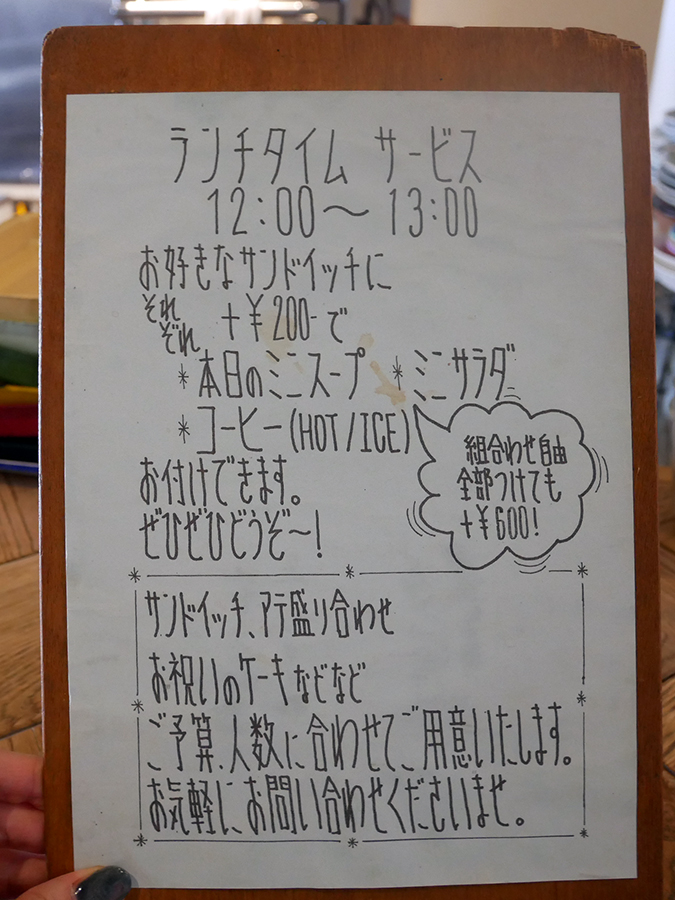 ランチタイム サービス
12:00〜13:00
お好きなサンドイッチに
それぞれ +¥200-で
*本日のミニスープ *ミニサラダ
*コーヒー(HOT/ICE)
組合わせ自由
全部つけても
+¥600!
お付けできます。
ぜひぜひどうぞ〜!
サンドイッチ、アテ盛り合わせ
お祝いのケーキなどなど
ご予算、人数に合わせてご用意いたします。
お気軽にお問い合わせくださいませ。